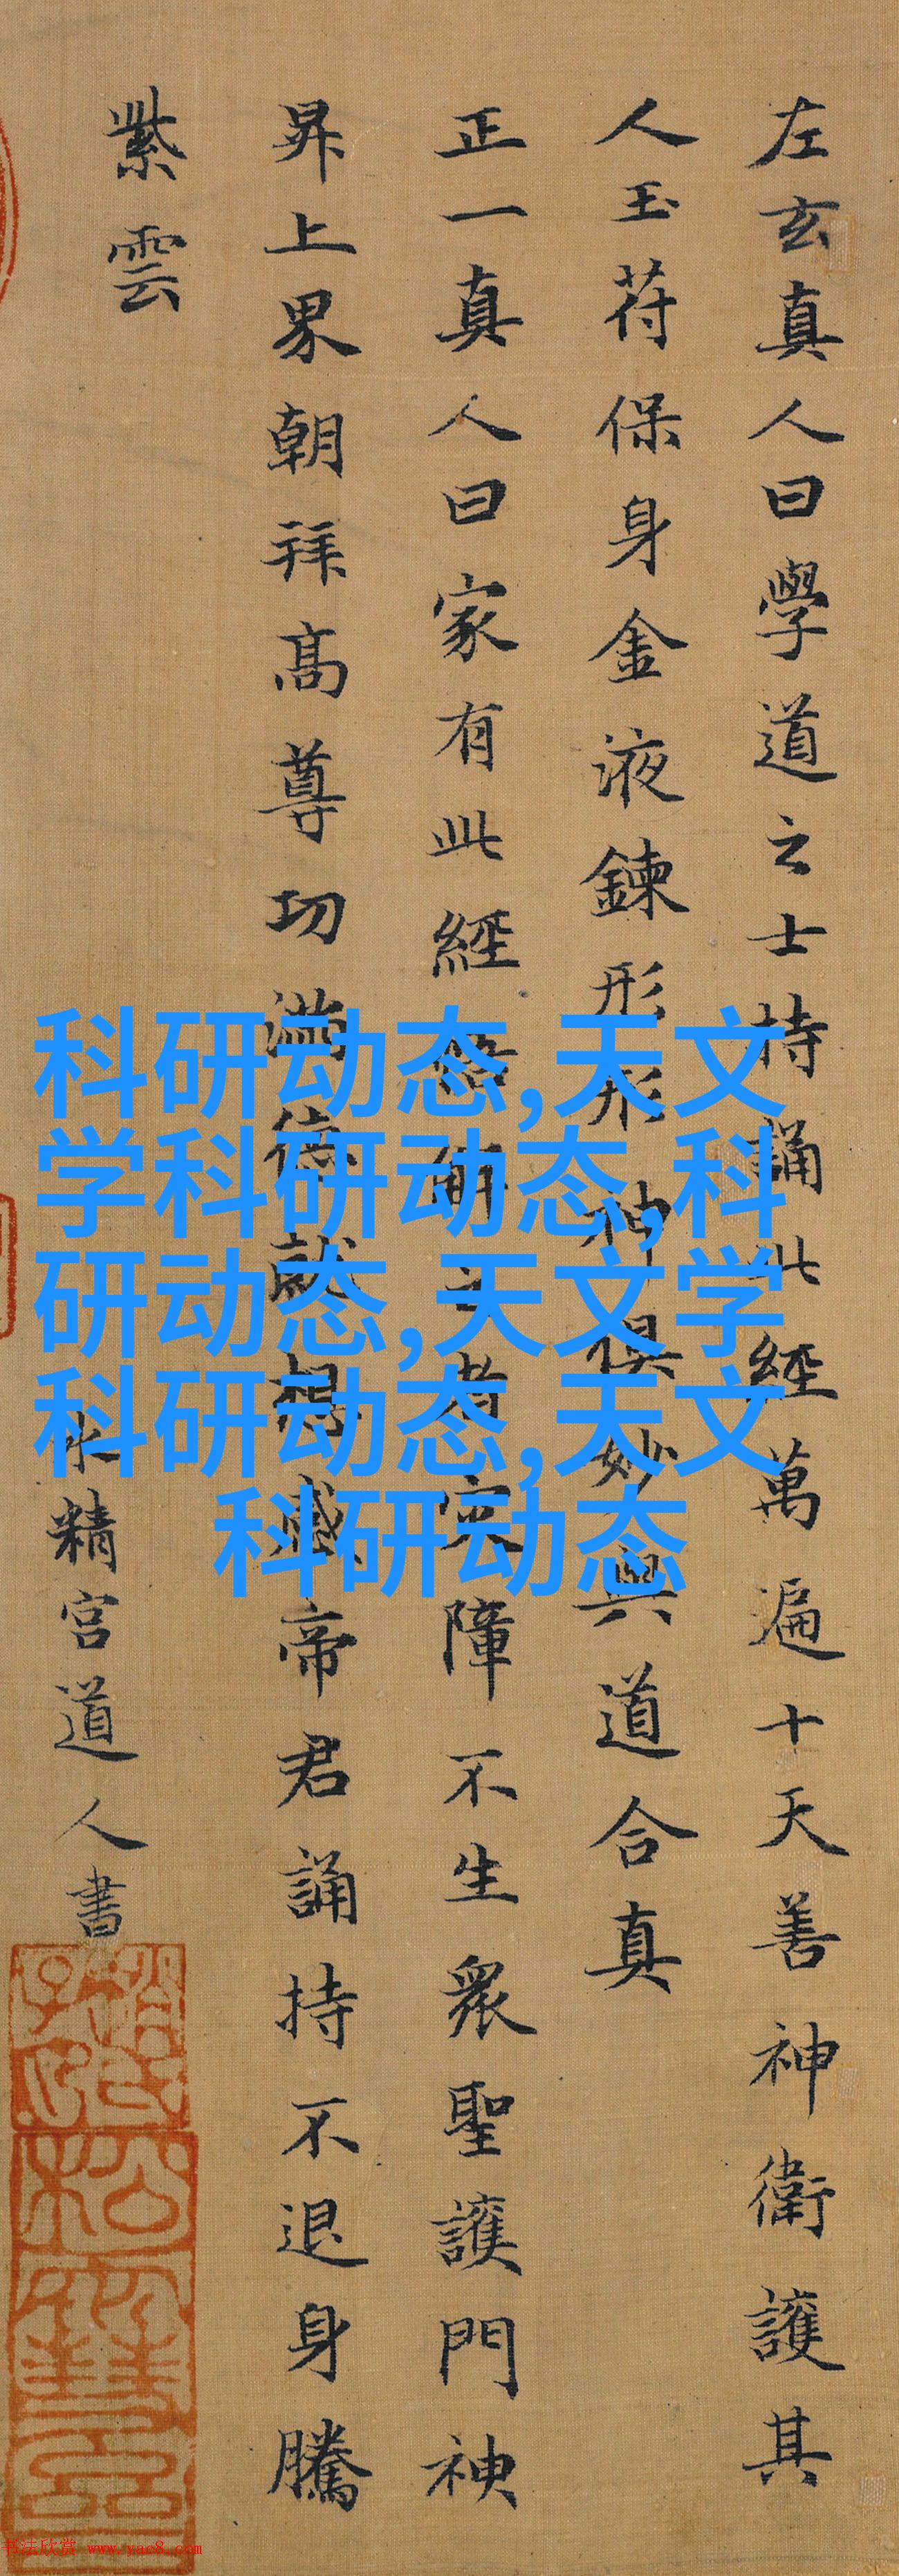 左玄真人曰學道之士持誦此經萬遍十天善神衛護其
人玉苻保身金液鍊形形神俱妙與道合真
正一真人曰家有此經悟解之者灾障不生衆聖護門神
昇上界朝拜高尊功滿德就想感帝君誦持不退身騰
紫雲
水精宮道人書
科研动态,天文
学科研动态,科
研动态,天文学
科研动态,天文
科研动态
书法欣赏 www.yac8.com